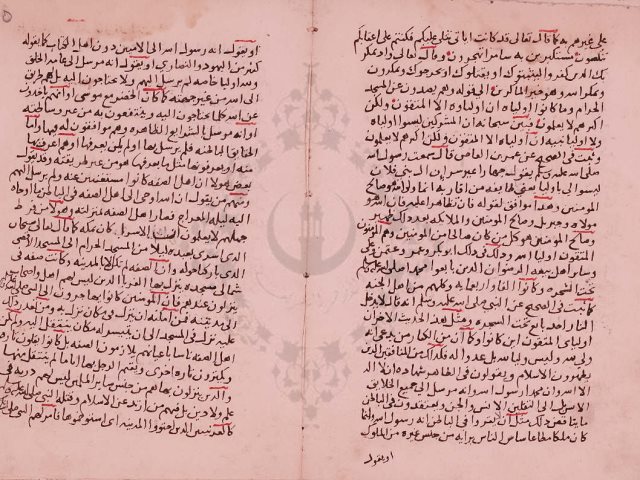 على غيرهم به كما قال تعالى قد كانت اياتي تتلى عليكم فكنتم على اعقابكم
تنكصون مستكبرين به سامرا تهجرون وقال تعالى واذ يمكر
بك الذين كفروا ليثبتوك او يقتلوك او يخرجوك ويمكرون
ويمكر الله والله خير الماكرين الى قوله وهم يصدون عن المسجد
الحرام وما كانوا اولياءه ان اولياؤه الا المتقون ولكن
اكثرهم لا يعلمون فبين سبحانه ان المشركين ليسوا اولياءه
ولا اولياء بيته ان اولياؤه الا المتقون ولكن اكثرهم لا يعلمون
وثبت في الصحيح عن عمرو بن العاص قال سمعت رسول الله
صلى الله عليه وسلم يقول جهارا غير سر ان ال بني فلان
ليسوا لي باولياء يعني طايفه من اقاربه انما وليي الله وصالح
المومنين وهذا موافق لقوله فان تظاهرا عليه فان الله هو
مولاه وجبريل وصالح المومنين والملايكه بعد ذلك ظهير
وصالح المومنين هو كل من كان صالحا من المومنين وهم المومنون
المتقون اولياء الله ودخل في ذلك ابو بكر وعمر وعثمن وعلي
وساير اهل بيعه الرضوان الذين بايعوا محمدا صلى الله عليه
تحت الشجره وكانوا الفا واربعمايه وكلهم من اهل الجنه
كما ثبت في الصحيح عن النبي صلى الله عليه وسلم انه قال لا يدخل
النار احد بايع تحت الشجره ومثل هذا الحديث الاخر ان
اوليائي المتقون اين كانوا وكما ان من الكفار من يدعي انه
ولي الله وليس وليا لله بل عدو له فكذلك من المنافقين الذين
يظهرون الاسلام ويقولون في الظاهر شهاده ان لا اله
الا الله وان محمدا رسول الله وانه مرسل الى جميع الخلايق
الانس بل الى الثقلين الانس والجن ويعتقدون في الباطن
ما يناقض ذلك مثل ان لا يقروا في الباطن انه رسول الله وانما
كان ملكا مطاعا ساس الناس برايه من جنس غيره من الملوك
او يقول
او يقول انه رسول الله الى الاميين دون اهل الكتاب كما يقوله
كثير من اليهود والنصارى او يقوله انه مرسل الى عامه الخلق
ولله اولياء خاصه لم يرسل اليهم ولا يحتاجون اليه بل لهم طريق
الى الله من غير جهته كما كان الخضر مع موسى او انهم ياخذون
عن الله كل ما يحتاجون اليه وينتفعون به من غير واسطه
او انه مرسل بالشرايع الظاهره وهم موافقون له فيها واما
الحقايق الباطنه فلم يرسل بها او لم يكن يعرفها او هم اعرف بها
منه او يعرفونها مثل ما يعرفها هو من غير طريقته وقد يقول
بعض هولا ان اهل الصفه كانوا مستغنين عنه ولم يرسل اليهم
ومنهم من يقول ان الله اوحى الى اهل الصفه في الباطن ما اوحاه
اليه ليله المعراج فصار اهل الصفه بمنزلته وهولا من فرط
جهلهم لا يعلمون ان الاسرا كان بمكه كما قال تعالى سبحان
الذي اسرى بعبده ليلا من المسجد الحرام الى المسجد الاقصى
الذي باركنا حوله وان الصفه لم تكن الا بالمدينه وكانت صفه في
شمالي مسجده ينزل بها الغربا الذين ليس لهم اهل واصحاب
ينزلون عندهم فان المومنين كانوا يهاجرون الى النبي صلى الله
الى المدينه فمن امكنه ان ينزل في مكان نزل به ومن تعذر ذلك
عليه نزل في المسجد الى ان يتيسر له مكان ينتقل اليه ولم يكن
اهل الصفه ناسا باعيانهم يلازمون الصفه بل كانوا يقلون تاره
ويكثرون تاره اخرى ويقيم الرجل بها زمانا ثم ينتقل منها
والذين ينزلون بها هم من جنس ساير المسلمين ليس لهم مزيه في
علم ولا دين بل فيهم من ارتد عن الاسلام وقتله النبي صلى الله
كالعرنيين الذين اجتووا المدينه اي استوخموها فامر لهم النبي صلى الله